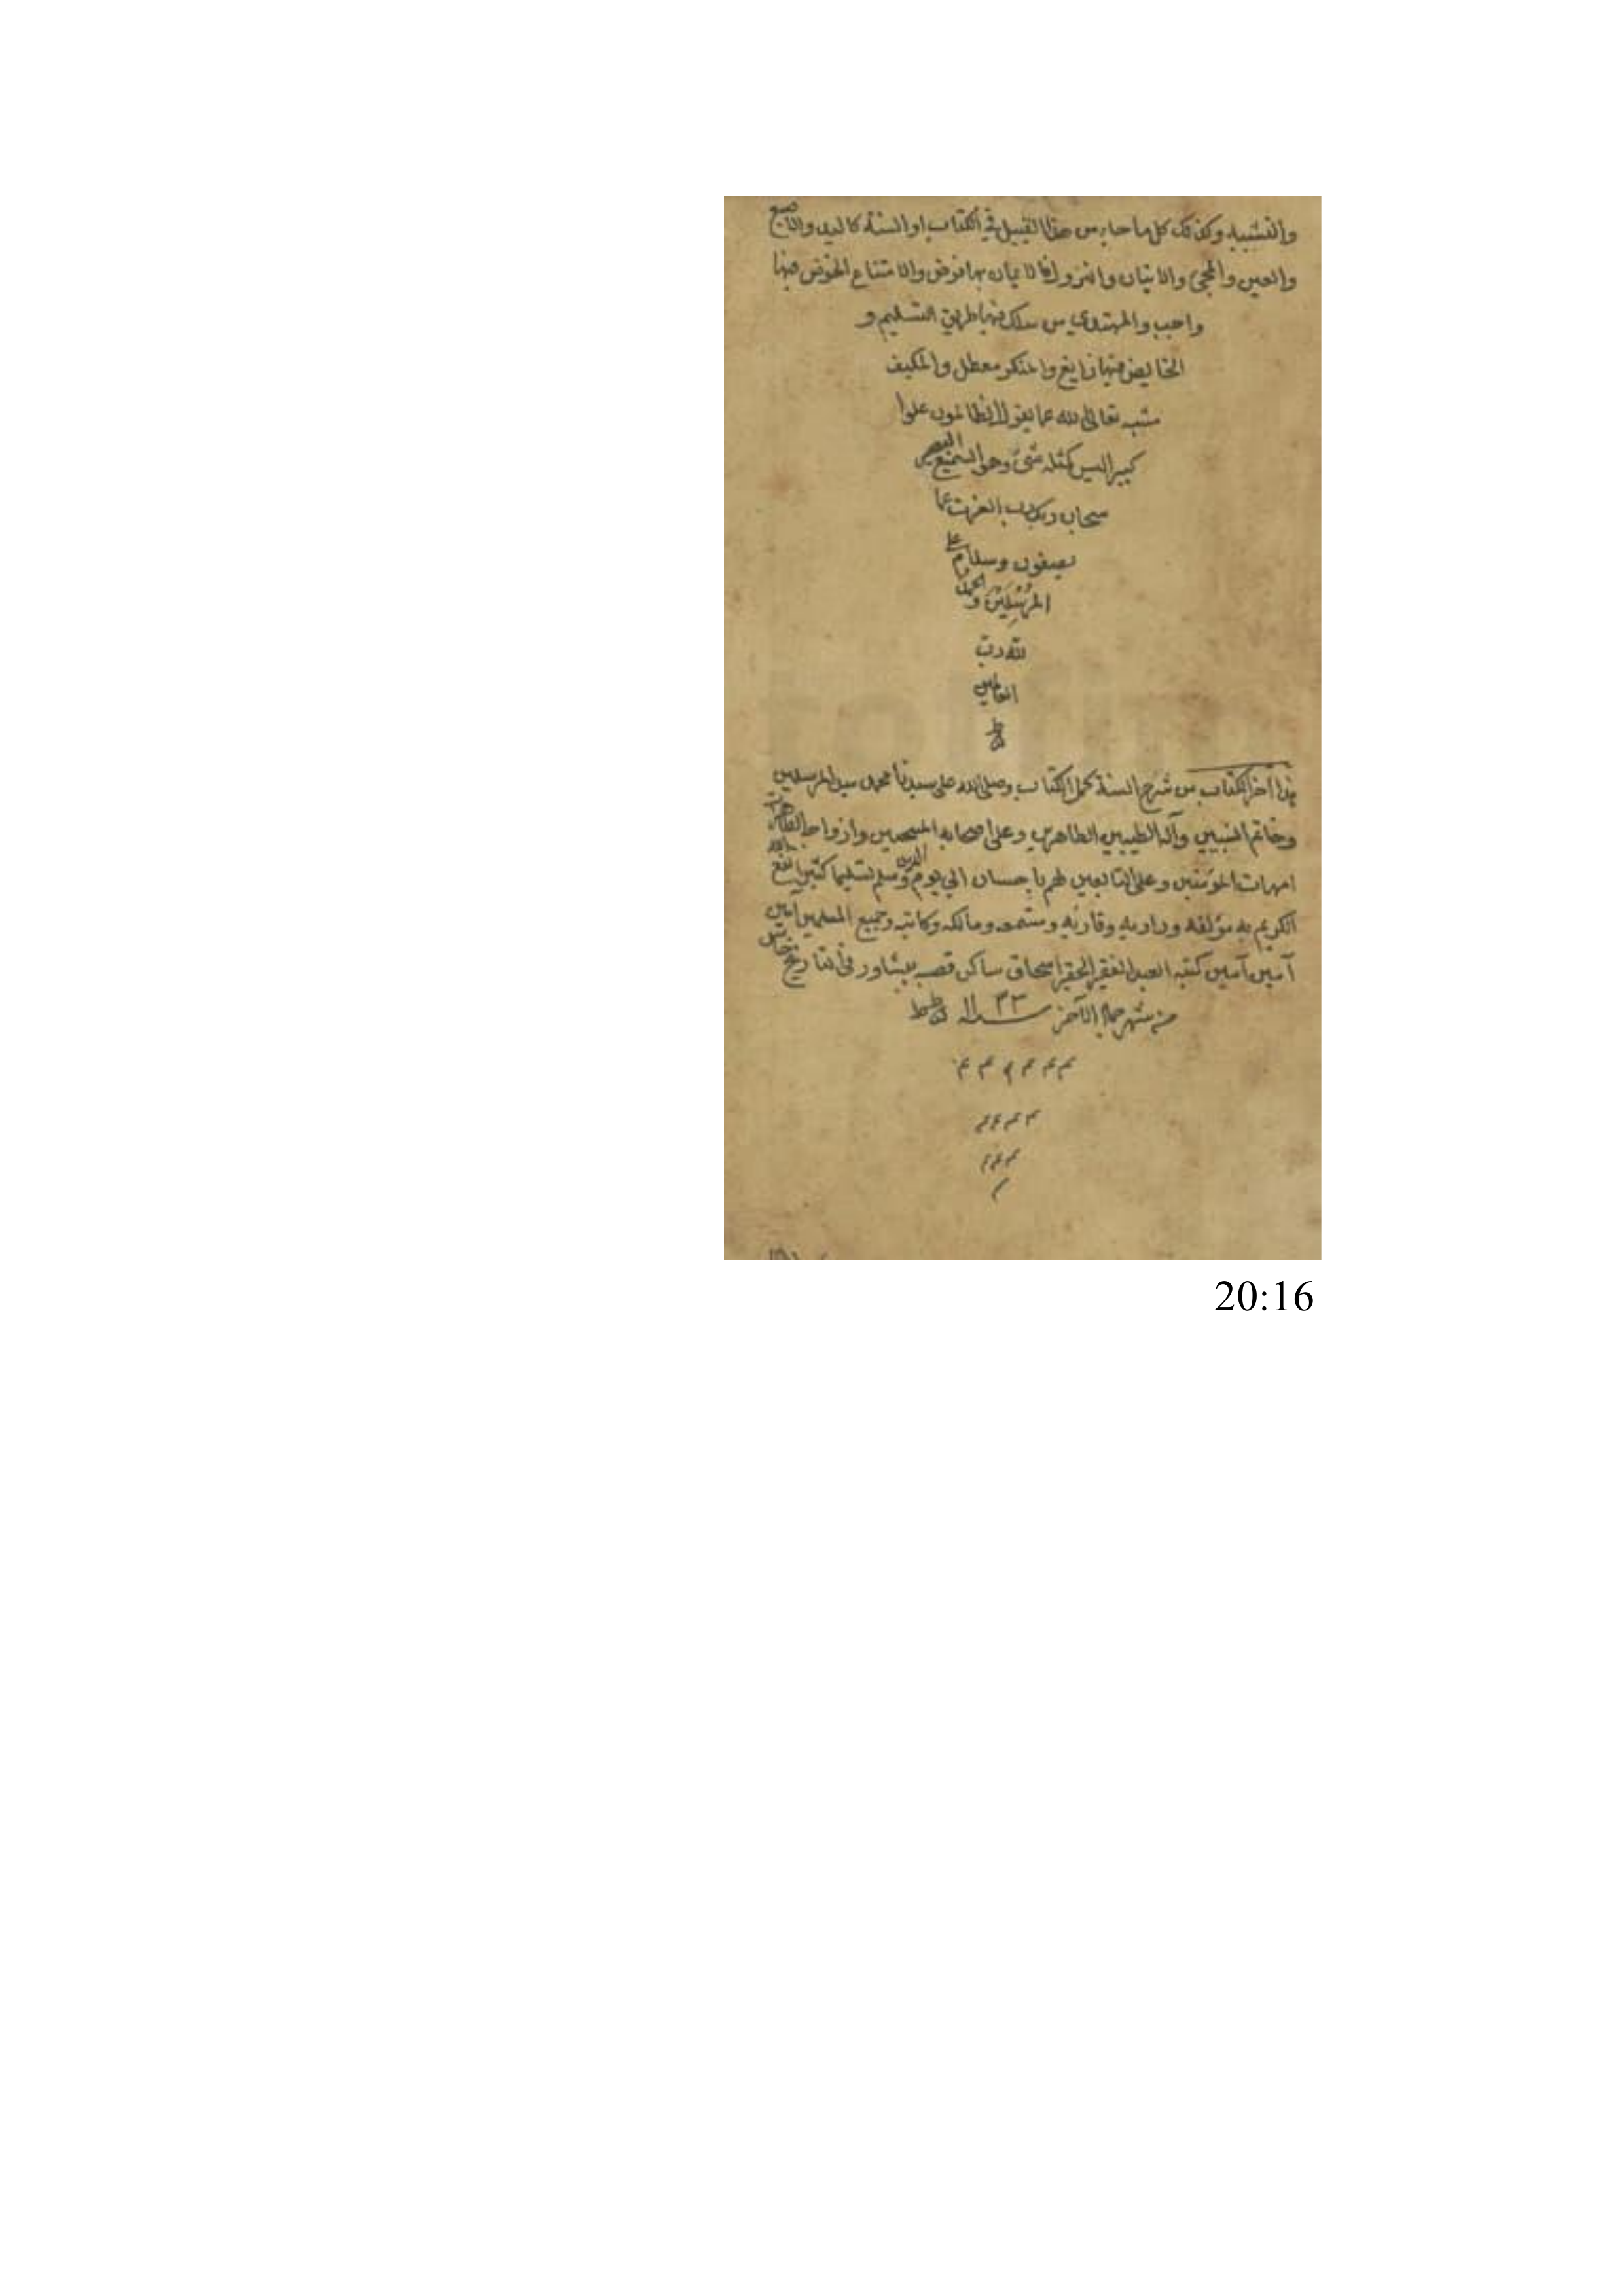 والتشبيه وكذلك كل ما جاء من هذا القبيل في الكتاب او السنة كاليد والاصبع
والعين والمجئ والاتيان والنزول فالايمان بها فرض والامتناع الخوض فيها
واجب والمهتدي من سلك فيها طريق التسليم و
الخايض فيها زايغ والمنكر معطل والمكيف
مشبه تعالى الله عما يقول الظالمون علوا
كبيرا ليس كمثله شئ وهو السميع البصير
سبحان ربك رب العزت عما
يصفون وسلام على
المرسلين والحمد
لله رب
العالمين
هذا آخر الكتاب من شرح السنة كمل الكتاب وصلى الله على سيدنا محمد سيد المرسلين
وخاتم النبيين وآله الطيبين الطاهرين وعلى اصحابه وازواجه الطاهرات
امهات المؤمنين وعلى التابعين لهم باحسان الي يوم الدين وسلم تسليما كثيرا نفع الله
الكريم به مؤلفه وقارئه ومستمعه ومالكه وكاتبه وجميع المسلمين آمين
آمين آمين كتبه العبد الفقير الحقير اسحاق ساكن قصبه پشاور في التاريخ
من شهر جماد الآخر سنه ١١٣٣
20:16